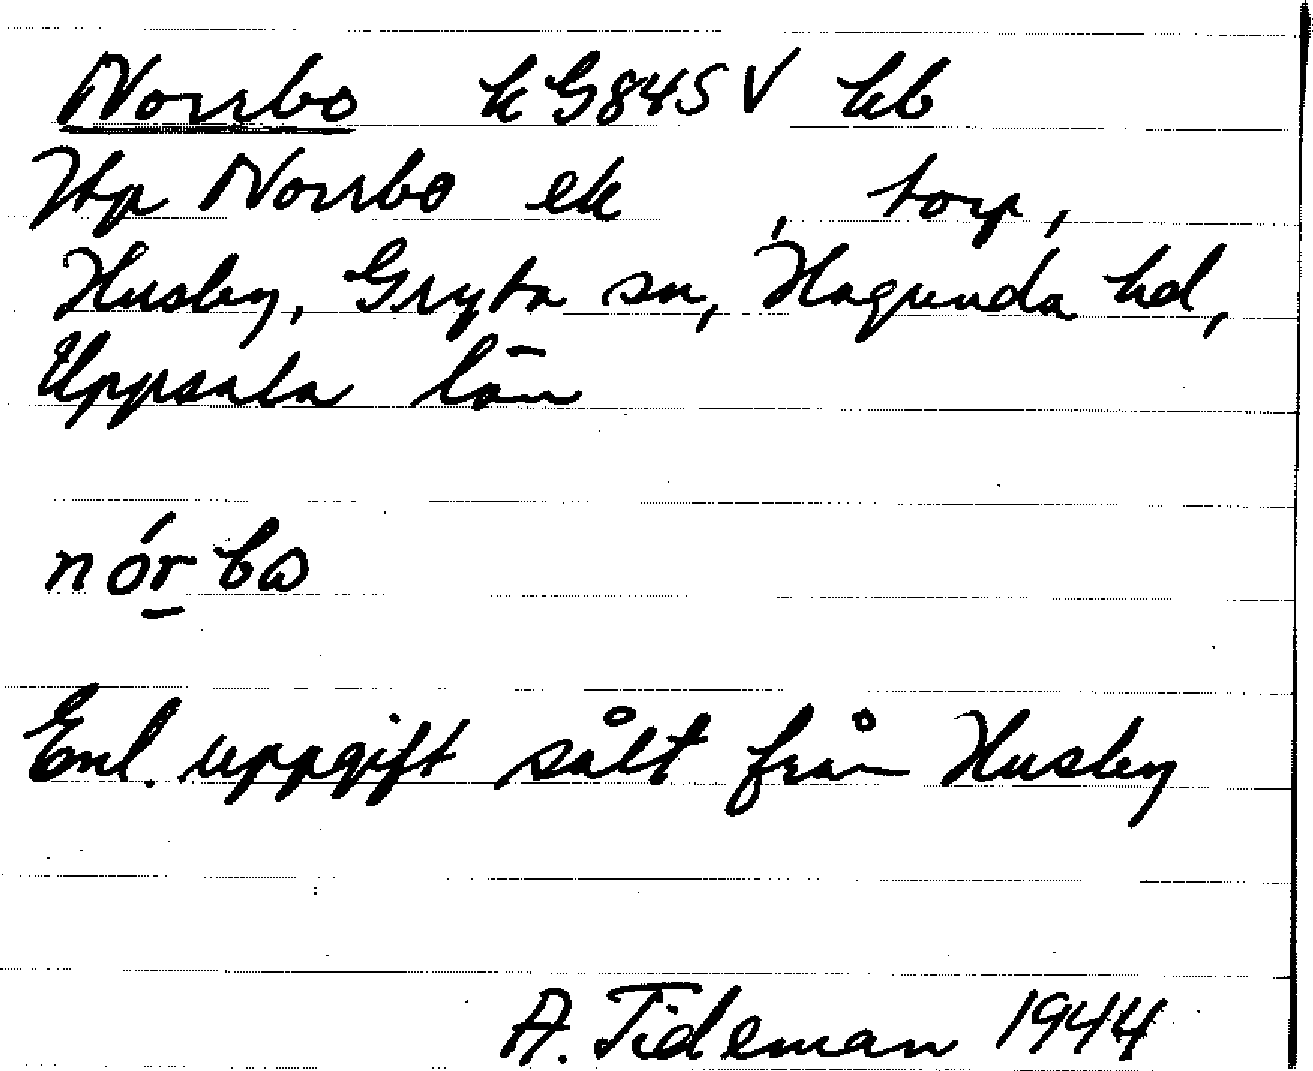 Norrbo k G845 V kb
Htp Norrbo ek , torp,
Husby, Gryta sn, Hagunda hd,
Uppsala län
nór bω
Enl. uppgift sålt från Husby
A. Tideman 1944